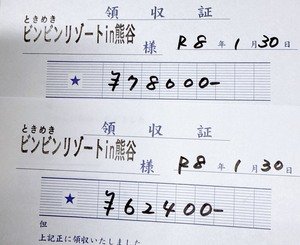 領収証
ときめき
ビンビンリゾートin熊谷
様 R8年1月30日
★ ¥78000-
領収証
ときめき
ビンビンリゾートin熊谷
様 R8年1月30日
★ ¥62400-
但
上記正に領収いたしました